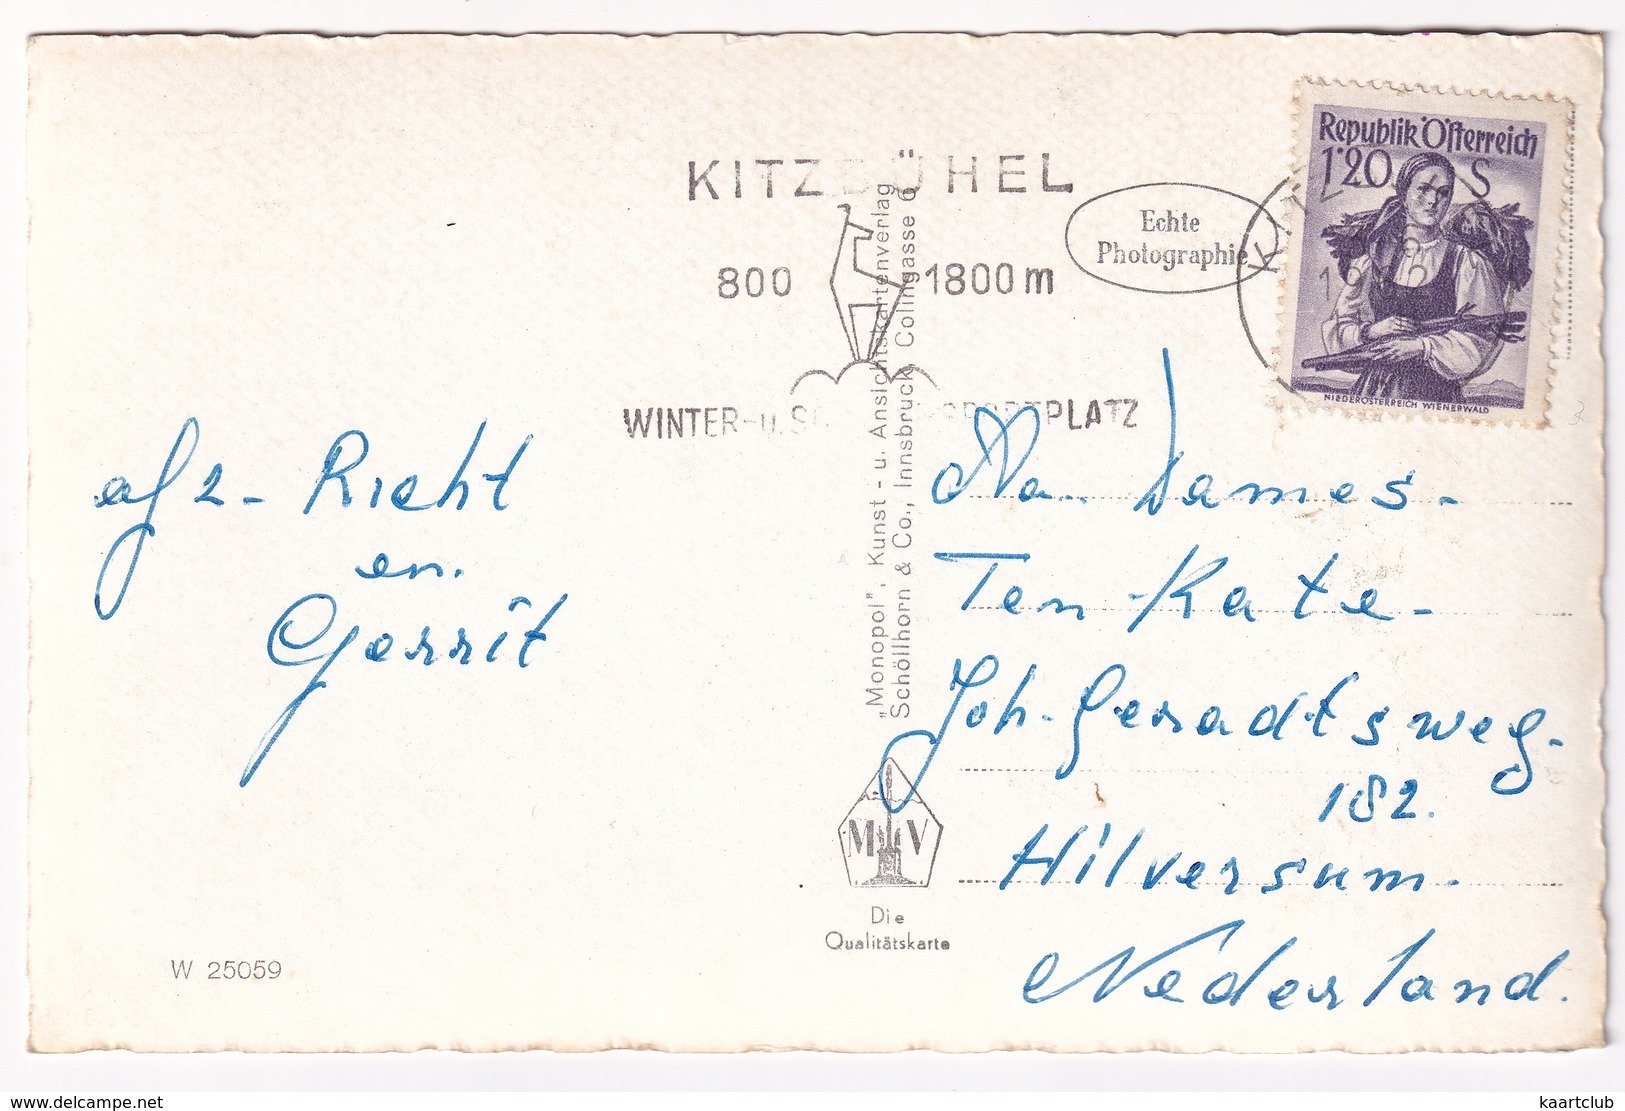 KITZBÜHEL
800 1800 m
WINTER-u. SPORTPLATZ
Echte
Photographie
Republik Österreich
1·20 S
NIEDERÖSTERREICH WIENERWALD
afz - Richt
en.
Gerrit
"Monopol", Kunst - u. Ansichtskartenverlag
Schöllhorn & Co., Innsbruck, Colingasse 6
Dames -
Ten - Kate -
Joh - Geradtsweg -
182.
Hilversum -
Nederland.
M V
Die
Qualitätskarte
W 25059
www.delcampe.net
kaartclub